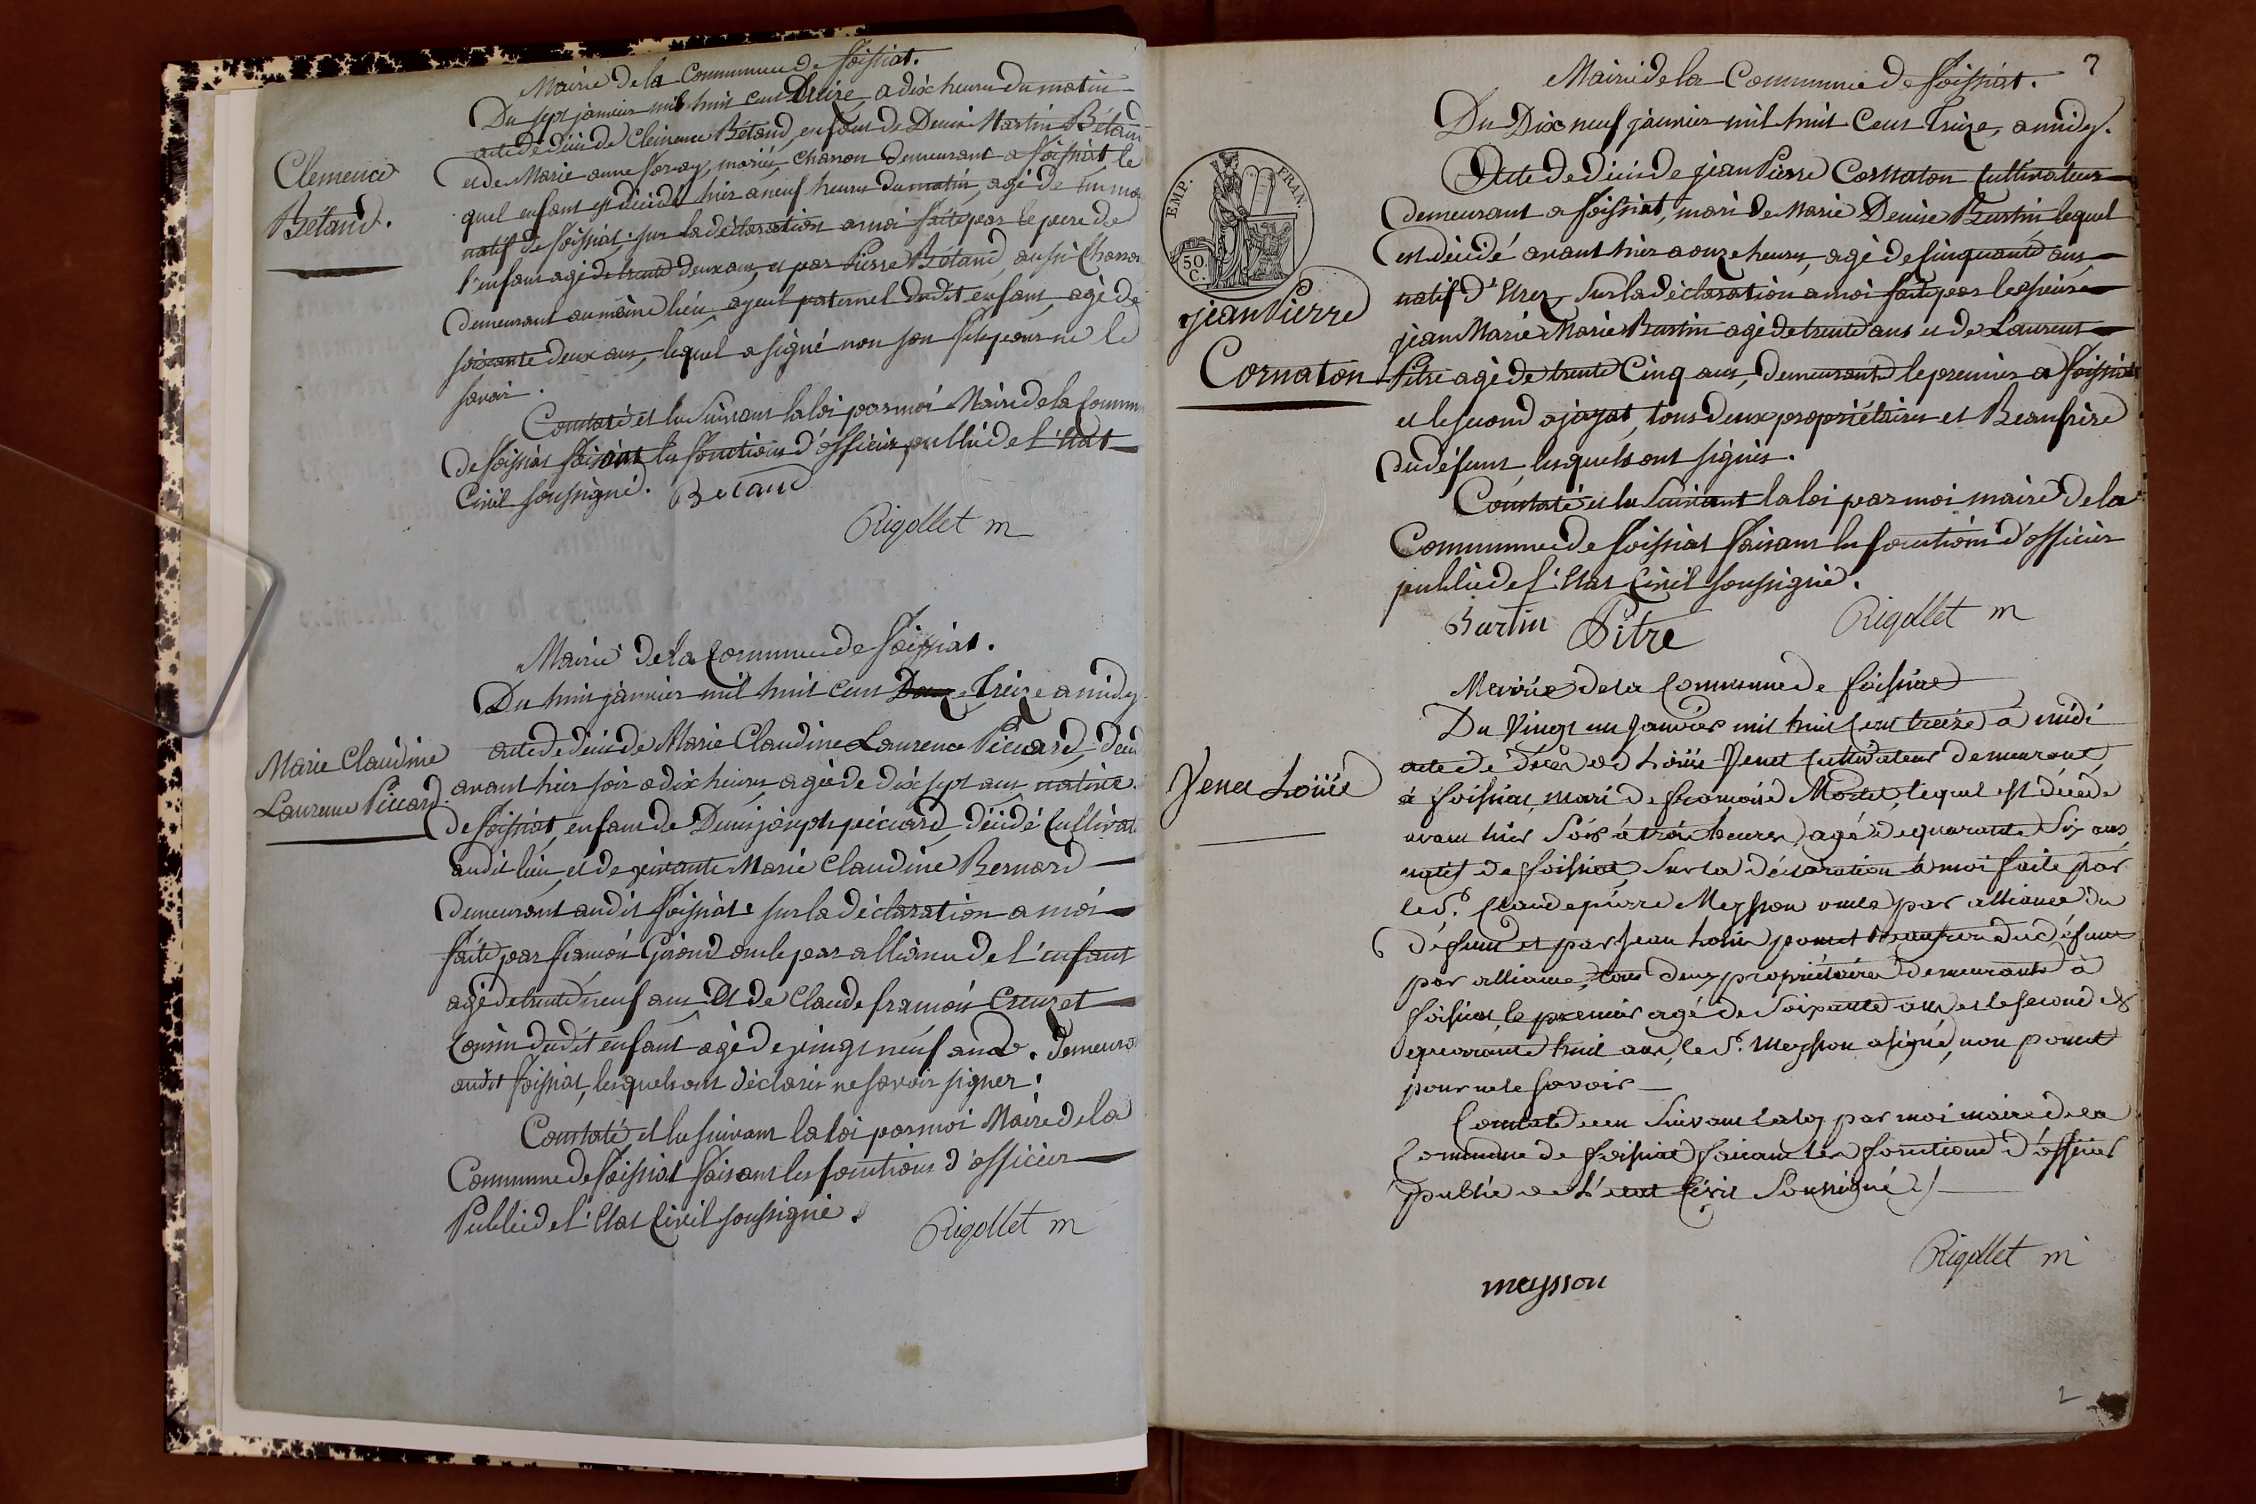 Mairie de la Commune de foissiat.
Du sept janvier mil huit cent treize, a dix heures du matin
acte de décès de Clemence Bétand, enfant de Denis Martin Bétand
et de Marie anne, mariés, demeurant a foissiat, le
quel enfant est décédé hier a neuf heures du matin, agé de un mois
natif de foissiat, sur la déclaration a moi faite par le pere de
l'enfant agé de trente deux ans, et par Pierre Bétand, aussi
demeurant au même lieu, ayeul paternel dudit enfant, agé de
soixante deux ans, lequel a signé non son fils pour ne le
savoir.
Constaté et lu suivant la loi par moi Maire de la Commune
de foissiat faisant les fonctions d'officier public de l'Etat
Civil soussigné. Betand
Rigollet m
Clemence
Bétand.
Mairie de la Commune de foissiat.
Du huit janvier mil huit cent Douze Treize a midy
acte de décès de Marie Claudine Laurence Piccard,
avant hier soir a dix heures, agée de dix sept ans, native
de foissiat, enfant de Denis joseph piccard, décédé Cultivat
audit lieu, et de vivante Marie Claudine Bernard
demeurant audit foissiat sur la déclaration a moi
faite par françois Girond oncle par alliance de l'enfant
agé de trente neuf ans, Et de Claude françois Creuzet
Cousin dudit enfant agé de vingt neuf ans. demeurant
audit foissiat, lesquels ont déclaré ne savoir signer.
Constaté et lu suivant la loi par moi Maire de la
Commune de foissiat faisant les fonctions d'officier
Public de l'Etat Civil soussigné.
Rigollet m
Marie Claudine
Laurence Piccard.
2
Mairie de la Commune de foissiat.
Du Dix neuf janvier mil huit Cent treize, a midy.
Acte de décès de jean Pierre Cornaton Cultivateur
demeurant a foissiat, mari de Marie Denise Burtin lequel
est décédé avant hier a onze heures, agé de Cinquante ans
natif d'Etrez, sur la déclaration a moi faite par les sieurs
jean Marie Marie Burtin agé de trente ans et de Laurent
Pitre agé de trente Cinq ans, demeurants le premier a foissiat
et le second a jayat, tous deux propriétaires et Beaufrère
du défunt, lesquels ont signés.
Constaté et lu Suivant la loi par moi maire de la
Commune de foissiat faisant les fonctions d'officier
public de l'Etat Civil soussigné.
Burtin Pitre Rigollet m
EMP. FRAN.
50 C.
jean Pierre
Cornaton
Mairie de la Commune de foissiat
Du Vingt un Janvier mil huit Cent treize a midi
acte de décès de Loüis Venet Cultivateur demeurant
à foissiat, mari de françoise Mortet, lequel est décédé
avant hier Soir à trois heures, agé de quarante Six ans
natif de foissiat, Sur la déclaration à moi faite par
le Sr. Claude pierre Meysson oncle par alliance du
défunt et par Jean Louis ponet Beaufrere du défunt
par alliance, tous deux propriétaires demeurants à
foissiat, le premier agé de Soixante ans et le second de
quarante huit ans, le Sr. Meysson a signé, non ponet
pour ne le Savoir
Constaté et lu Suivant la loy par moi maire de la
Commune de foissiat faisant les fonctions d'officier
public de L'etat Civil Soussigné
Rigollet m
meysson
Venet Loüis
2